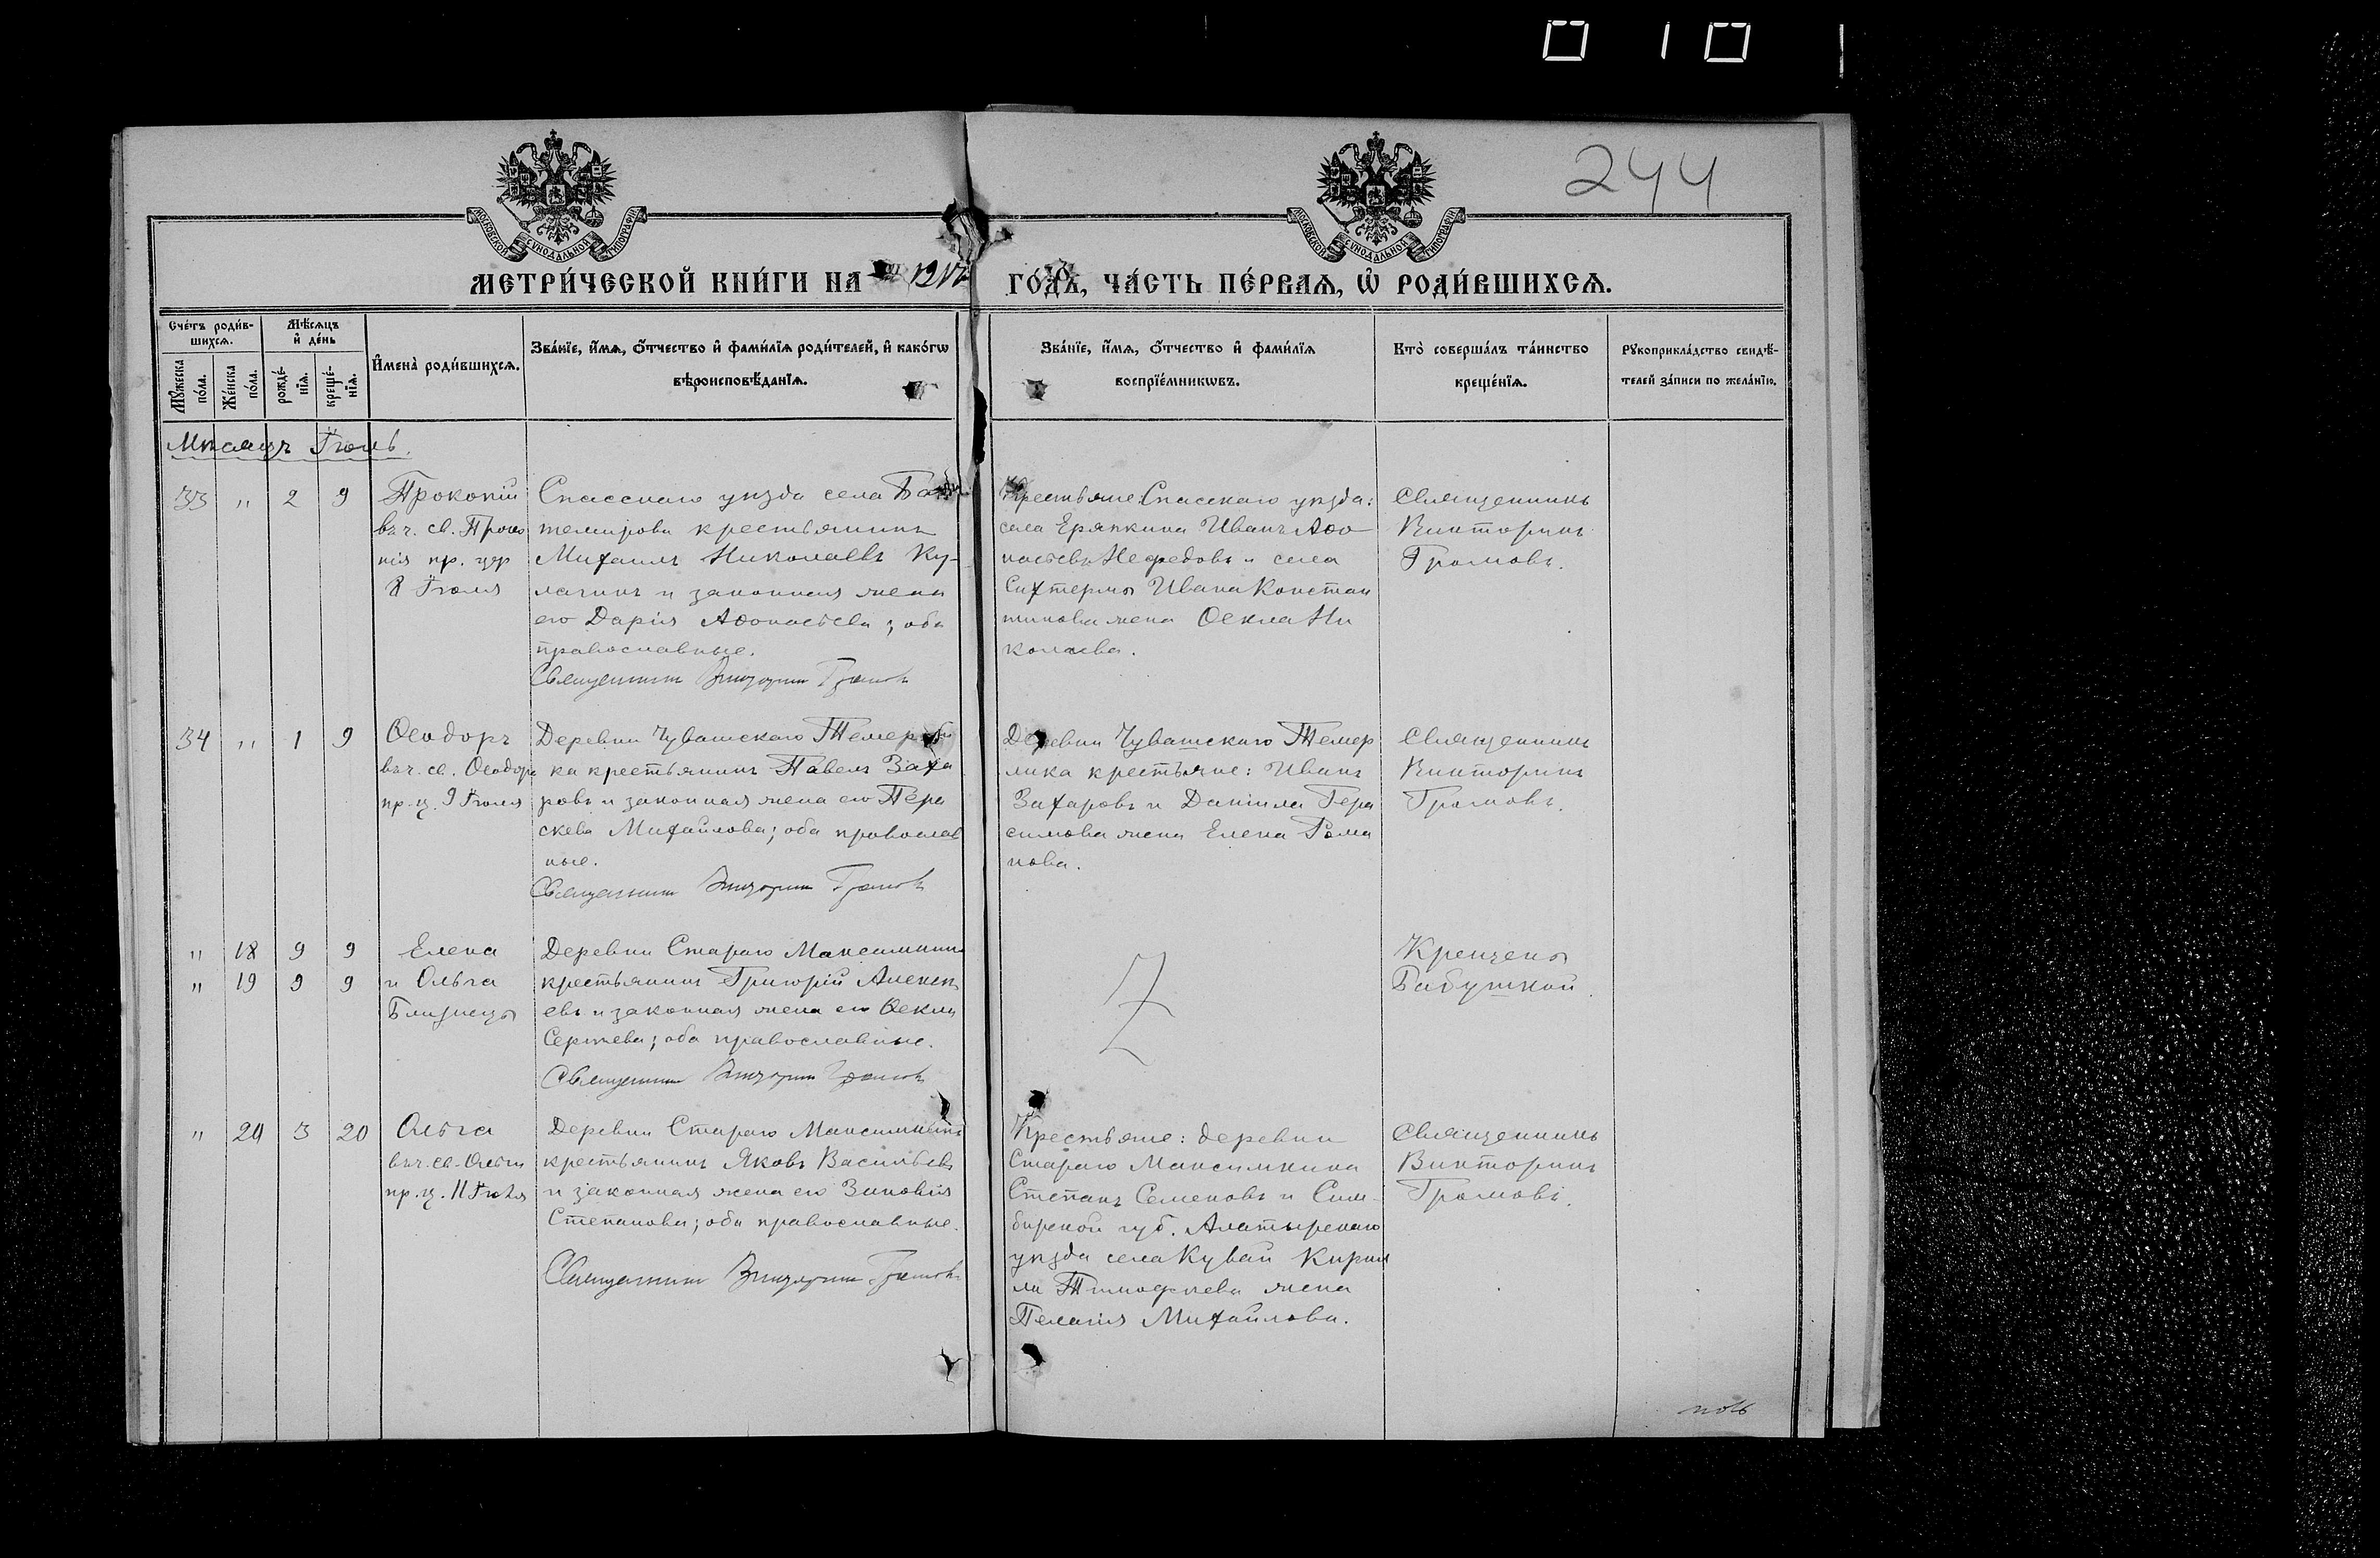 244
МОСКОВСКОЙ СѴНОДАЛЬНОЙ ТИПОГРАФІИ
МОСКОВСКОЙ СѴНОДАЛЬНОЙ ТИПОГРАФІИ
МЕТРИ́ЧЕСКОЙ КНИ́ГИ НА 1917 ГО́ДЪ, ЧА́СТЬ ПЕ́РВАѦ, Ѡ РОДИ́ВШИХСѦ.
Сче́тъ роди́в-
шихсѧ.
Мѣ́сѧцъ
и҆ де́нь
Мꙋ́жеска по́ла.
Же́нска по́ла.
рожде́-
нїѧ.
креще́-
нїѧ.
И҆мена̀ роди́вшихсѧ.
Зва́нїе, и҆́мѧ, ѻ҆́тчество и҆ фами́лїѧ роди́телей, и҆ како́гѡ
вѣроисповѣ́данїѧ.
Зва́нїе, и҆́мѧ, ѻ҆́тчество и҆ фами́лїѧ
воспрїе́мникѡвъ.
Кто̀ соверша́лъ та́инство
креще́нїѧ.
Рꙋкоприкла́дство свидѣ́-
телей за́писи по жела́нїю.
Мѣсяцъ Іюль.
33 " 2 9
Прокопій
въ ч. св. Проко
пія пр. цер
8 Іюля
Спасскаго уѣзда села
темирова крестьянинъ
Михаилъ Николаевъ Ку-
лагинъ и законная жена
его Дарія Аѳонасьева; оба
православные.
Священникъ Викторинъ Громовъ
Крестьяне Спасскаго уѣзда:
села Еряпкина Иванъ Аѳо
насьевъ Нефедовъ и села
Сихтермы Ивана Констан
тинова жена Ѳекла Ни
колаева.
Священникъ
Викторинъ
Громовъ.
34 " 1 9
Ѳеодоръ
въ ч. св. Ѳеодора
пр. ц. 9 Іюля
Деревни Чувашскаго Темер
ка крестьянинъ Павелъ Заха
ровъ и законная жена его Пара
скева Михайлова; оба православ
ные.
Священникъ Викторинъ Громовъ
Деревни Чувашскаго Темер
лика крестьяне: Иванъ
Захаровъ и Даніила Гера
симова жена Елена Рома
нова.
Священникъ
Викторинъ
Громовъ.
" 18 9 9
" 19 9 9
Елена
и Ольга
Близнецы
Деревни Стараго Максимкина
крестьянинъ Григорій Алексѣ
евъ и законная жена его Ѳекла
Сергѣева; оба православные.
Священникъ Викторинъ Громовъ
Z
Крещены
Бабушкой.
" 20 3 20
Ольга
въ ч. св. Ольги
пр. ц. 11 Іюля
Деревни Стараго Максимкина
крестьянинъ Яковъ Васильевъ
и законная жена его Зиновія
Степанова; оба православные.
Священникъ Викторинъ Громовъ
Крестьяне: деревни
Стараго Максимкина
Степанъ Семеновъ и Сим-
бирской губ. Алатырскаго
уѣзда села Кувай Кирил
ла Тимофѣева жена
Пелагія Михайлова.
Священникъ
Викторинъ
Громовъ.